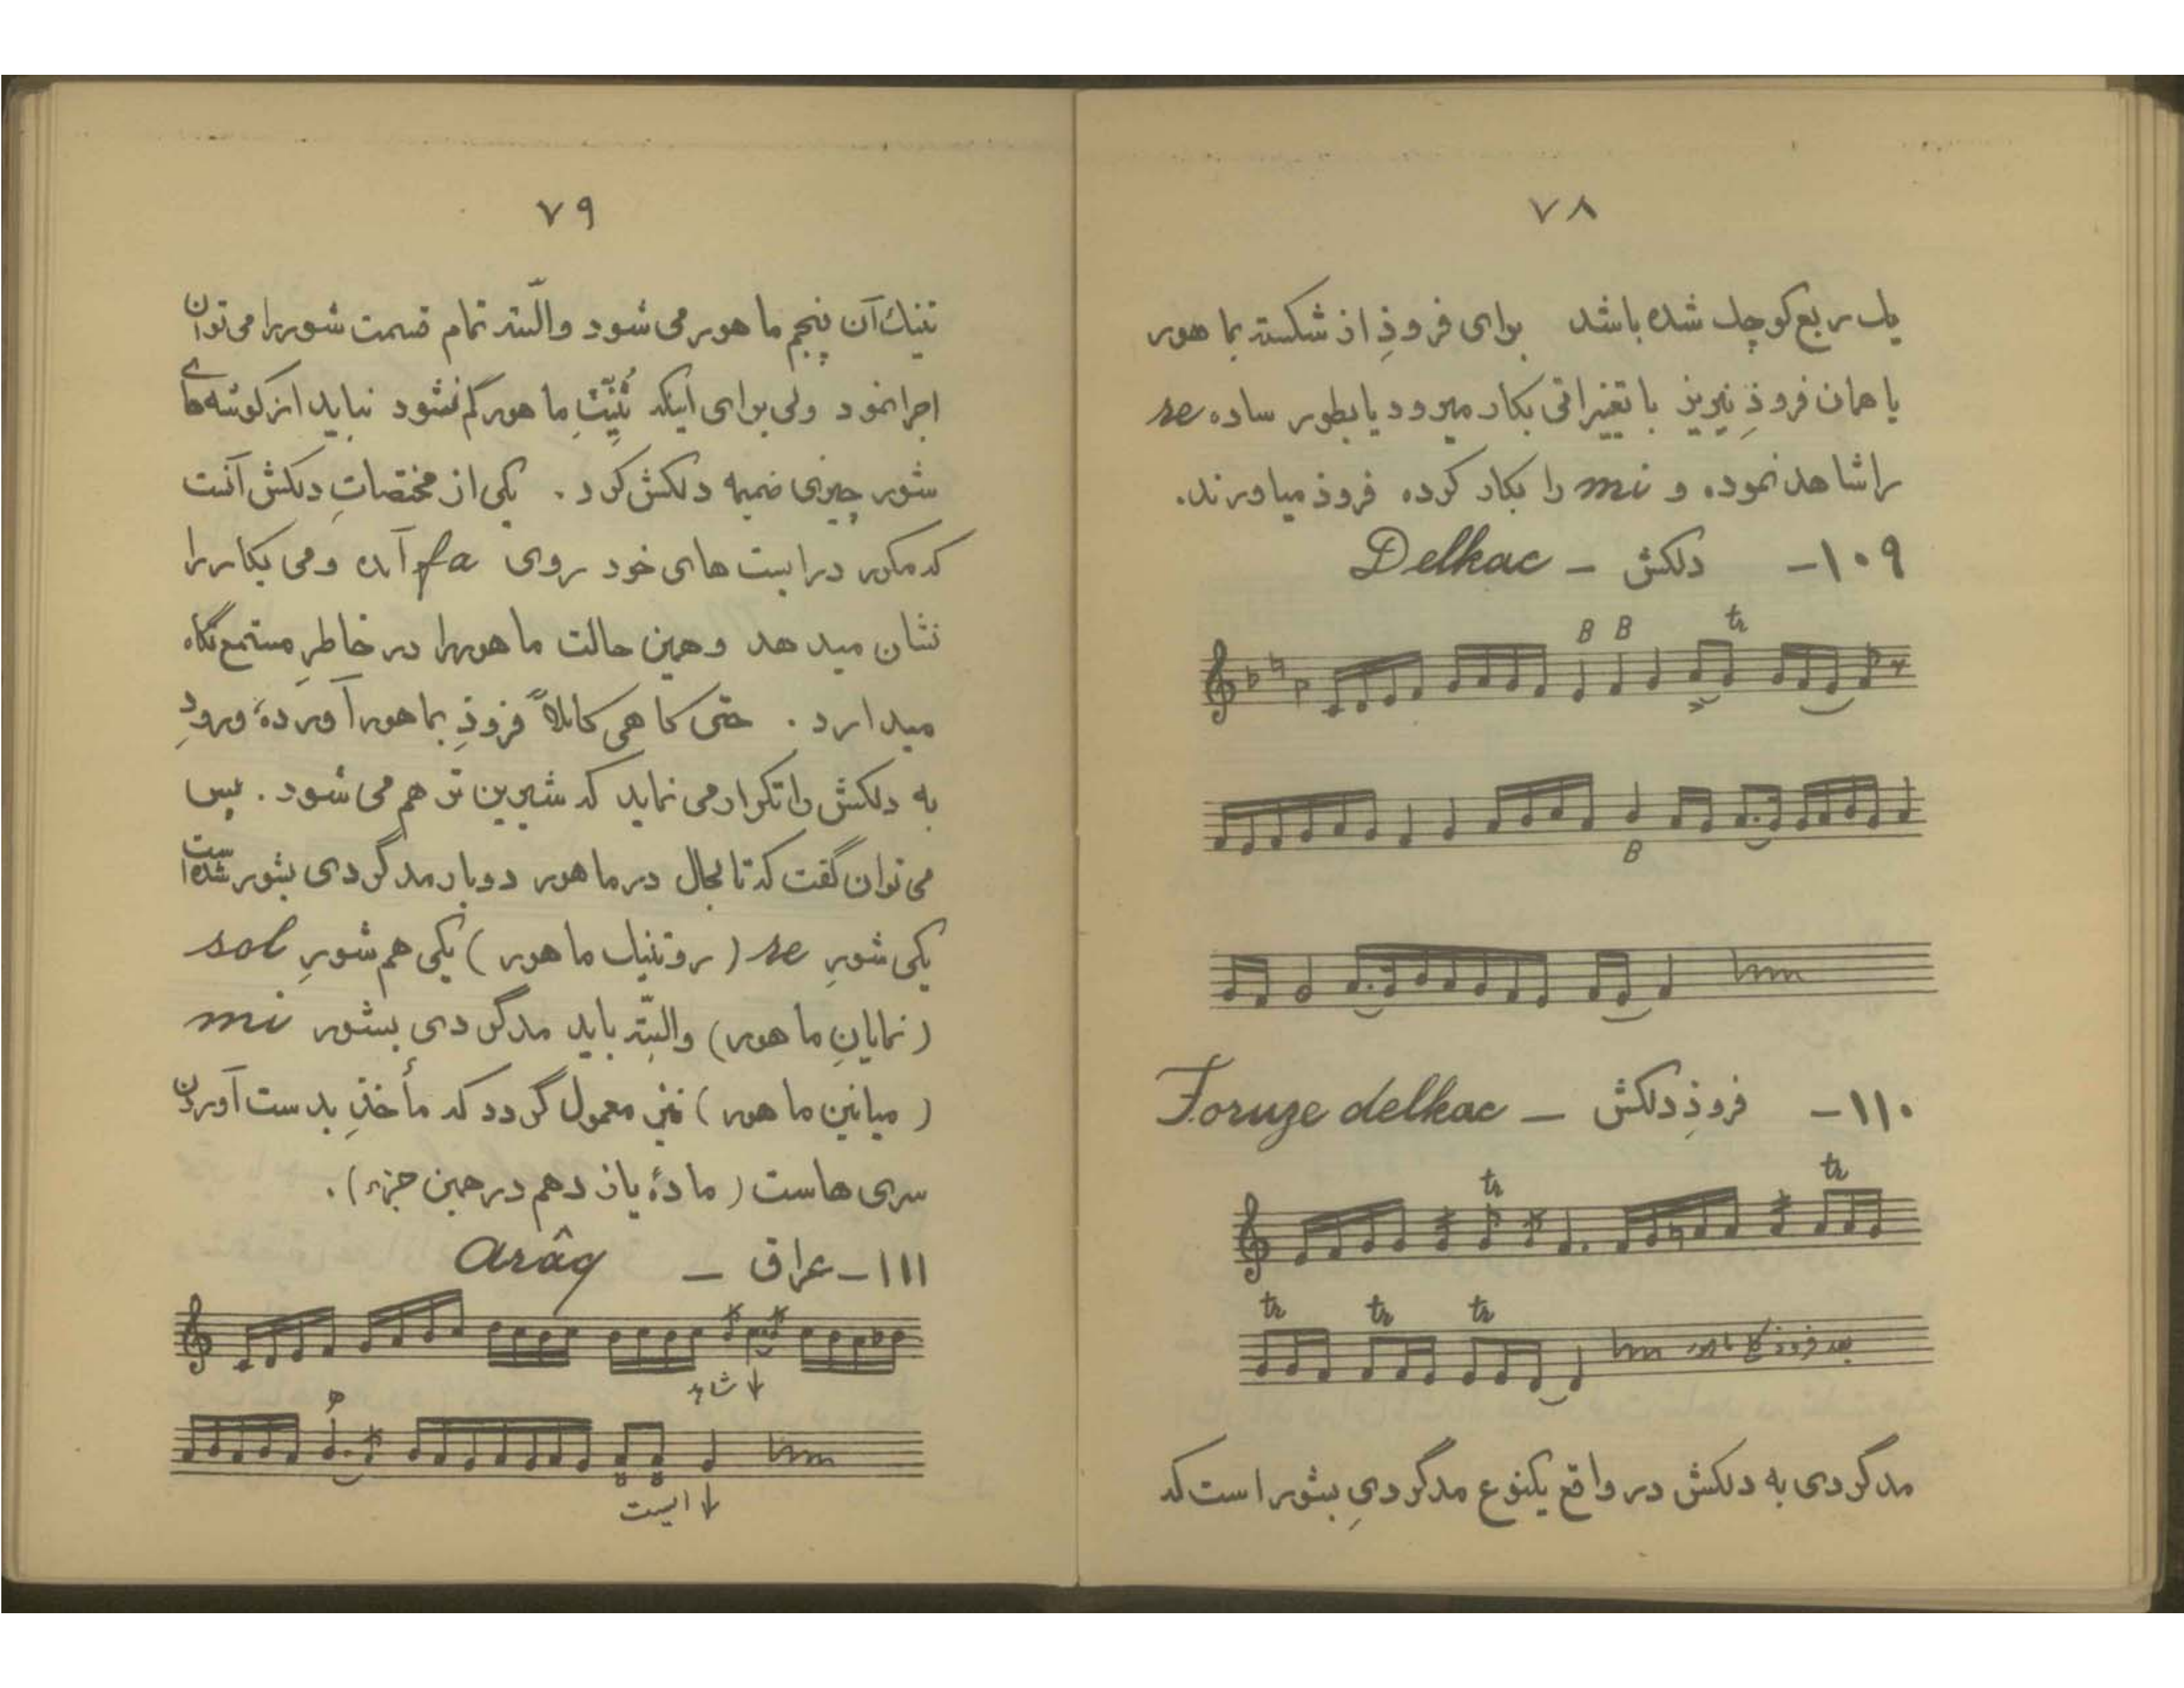 ۷۸
یك ربع کوچك شده باشد برای فروذِ از شکسته بما هور
یا همان فروذِ نیریز با تغییراتی بکار میرود یا بطور ساده re
را شاهد نموده و mi را بکار کرده فروذ میاورند.
۱۰۹- دلکش – Delkac
B B tr
B
۱۱۰- فروذِ دلکش – Foruze delkac
tr tr
tr tr tr
بعد فروذ بماهور
مدگردی به دلکش در واقع یکنوع مدگردیِ بشور است که
۷۹
تنیك آن پنجم ماهور می شود والبته تمام قسمت شور را می توان
اجرا نمود ولی برای اینکه تُنیّتِ ماهور گم نشود نباید از گوشه های
شور چیزی ضمیمه دلکش کرد. یکی از مختصاتِ دلکش آنست
که مکرر در ایست های خود روی fa آمده و می بکار را
نشان میدهد و همین حالت ماهور را در خاطرِ مستمع نگاه
میدارد. حتی گاهی کاملاً فروذِ بماهور آورده، ورودِ
به دلکش را تکرار می نماید که شیرین تر هم می شود. پس
می توان گفت که تا بحال در ماهور دوبار مدگردی بشور شده است
یکی شورِ re (روتنیك ماهور) یکی هم شورِ sol
(نمایانِ ماهور) والبتّه باید مدگردی بشور mi
(میانینِ ماهور) نیز معمول گردد که مأخذِ بدست آوردن
سری هاست (مادهٔ یازدهم در همین جزء).
۱۱۱- عراق – Arâq
↓ شاهد
↓ ایست